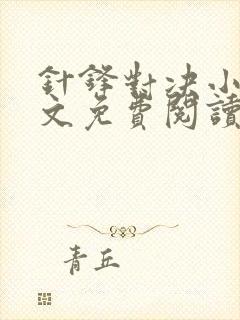 針鋒對決小
文免費閱讀
青丘